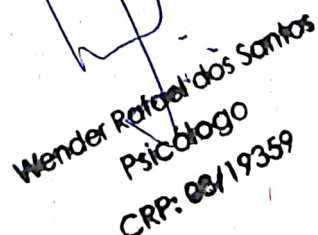 Wender Rafael dos Santos
Psicólogo
CRP: 08/19359